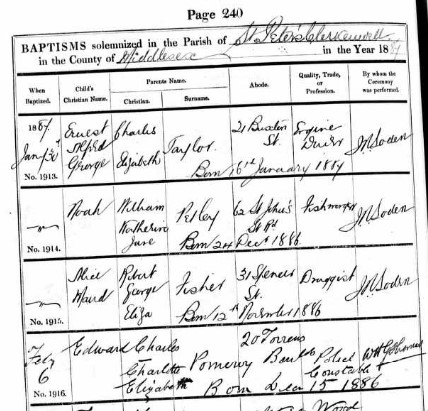 Page 240
BAPTISMS solemnized in the Parish of St Peter's Clerkenwell
in the County of Middlesex in the Year 188
When Baptized. Child's Christian Name. Parents Name. Christian. Surname. Abode. Quality, Trade, or Profession. By whom the Ceremony was performed.
1887 Ernest Charles 21 Buxton Engine
Jany 30 Alfred Taylor St. Driver JR Soden
George Elizabeth
No. 1913. Born 16th January 1887
Noah William Petley 62 St John's Fishmonger JR Soden
Katherine St Rd
Jane Born 24 Decr 1886
No. 1914.
Alice Robert 31 Spencer Druggist JR Soden
Maud George Fisher St.
Eliza Born 12th November 1886
No. 1915.
Feby Edward Charles 20 Torrens
6 Charlotte Pomeroy Police
Elizabeth Constable
No. 1916. Born Dec 15 1886